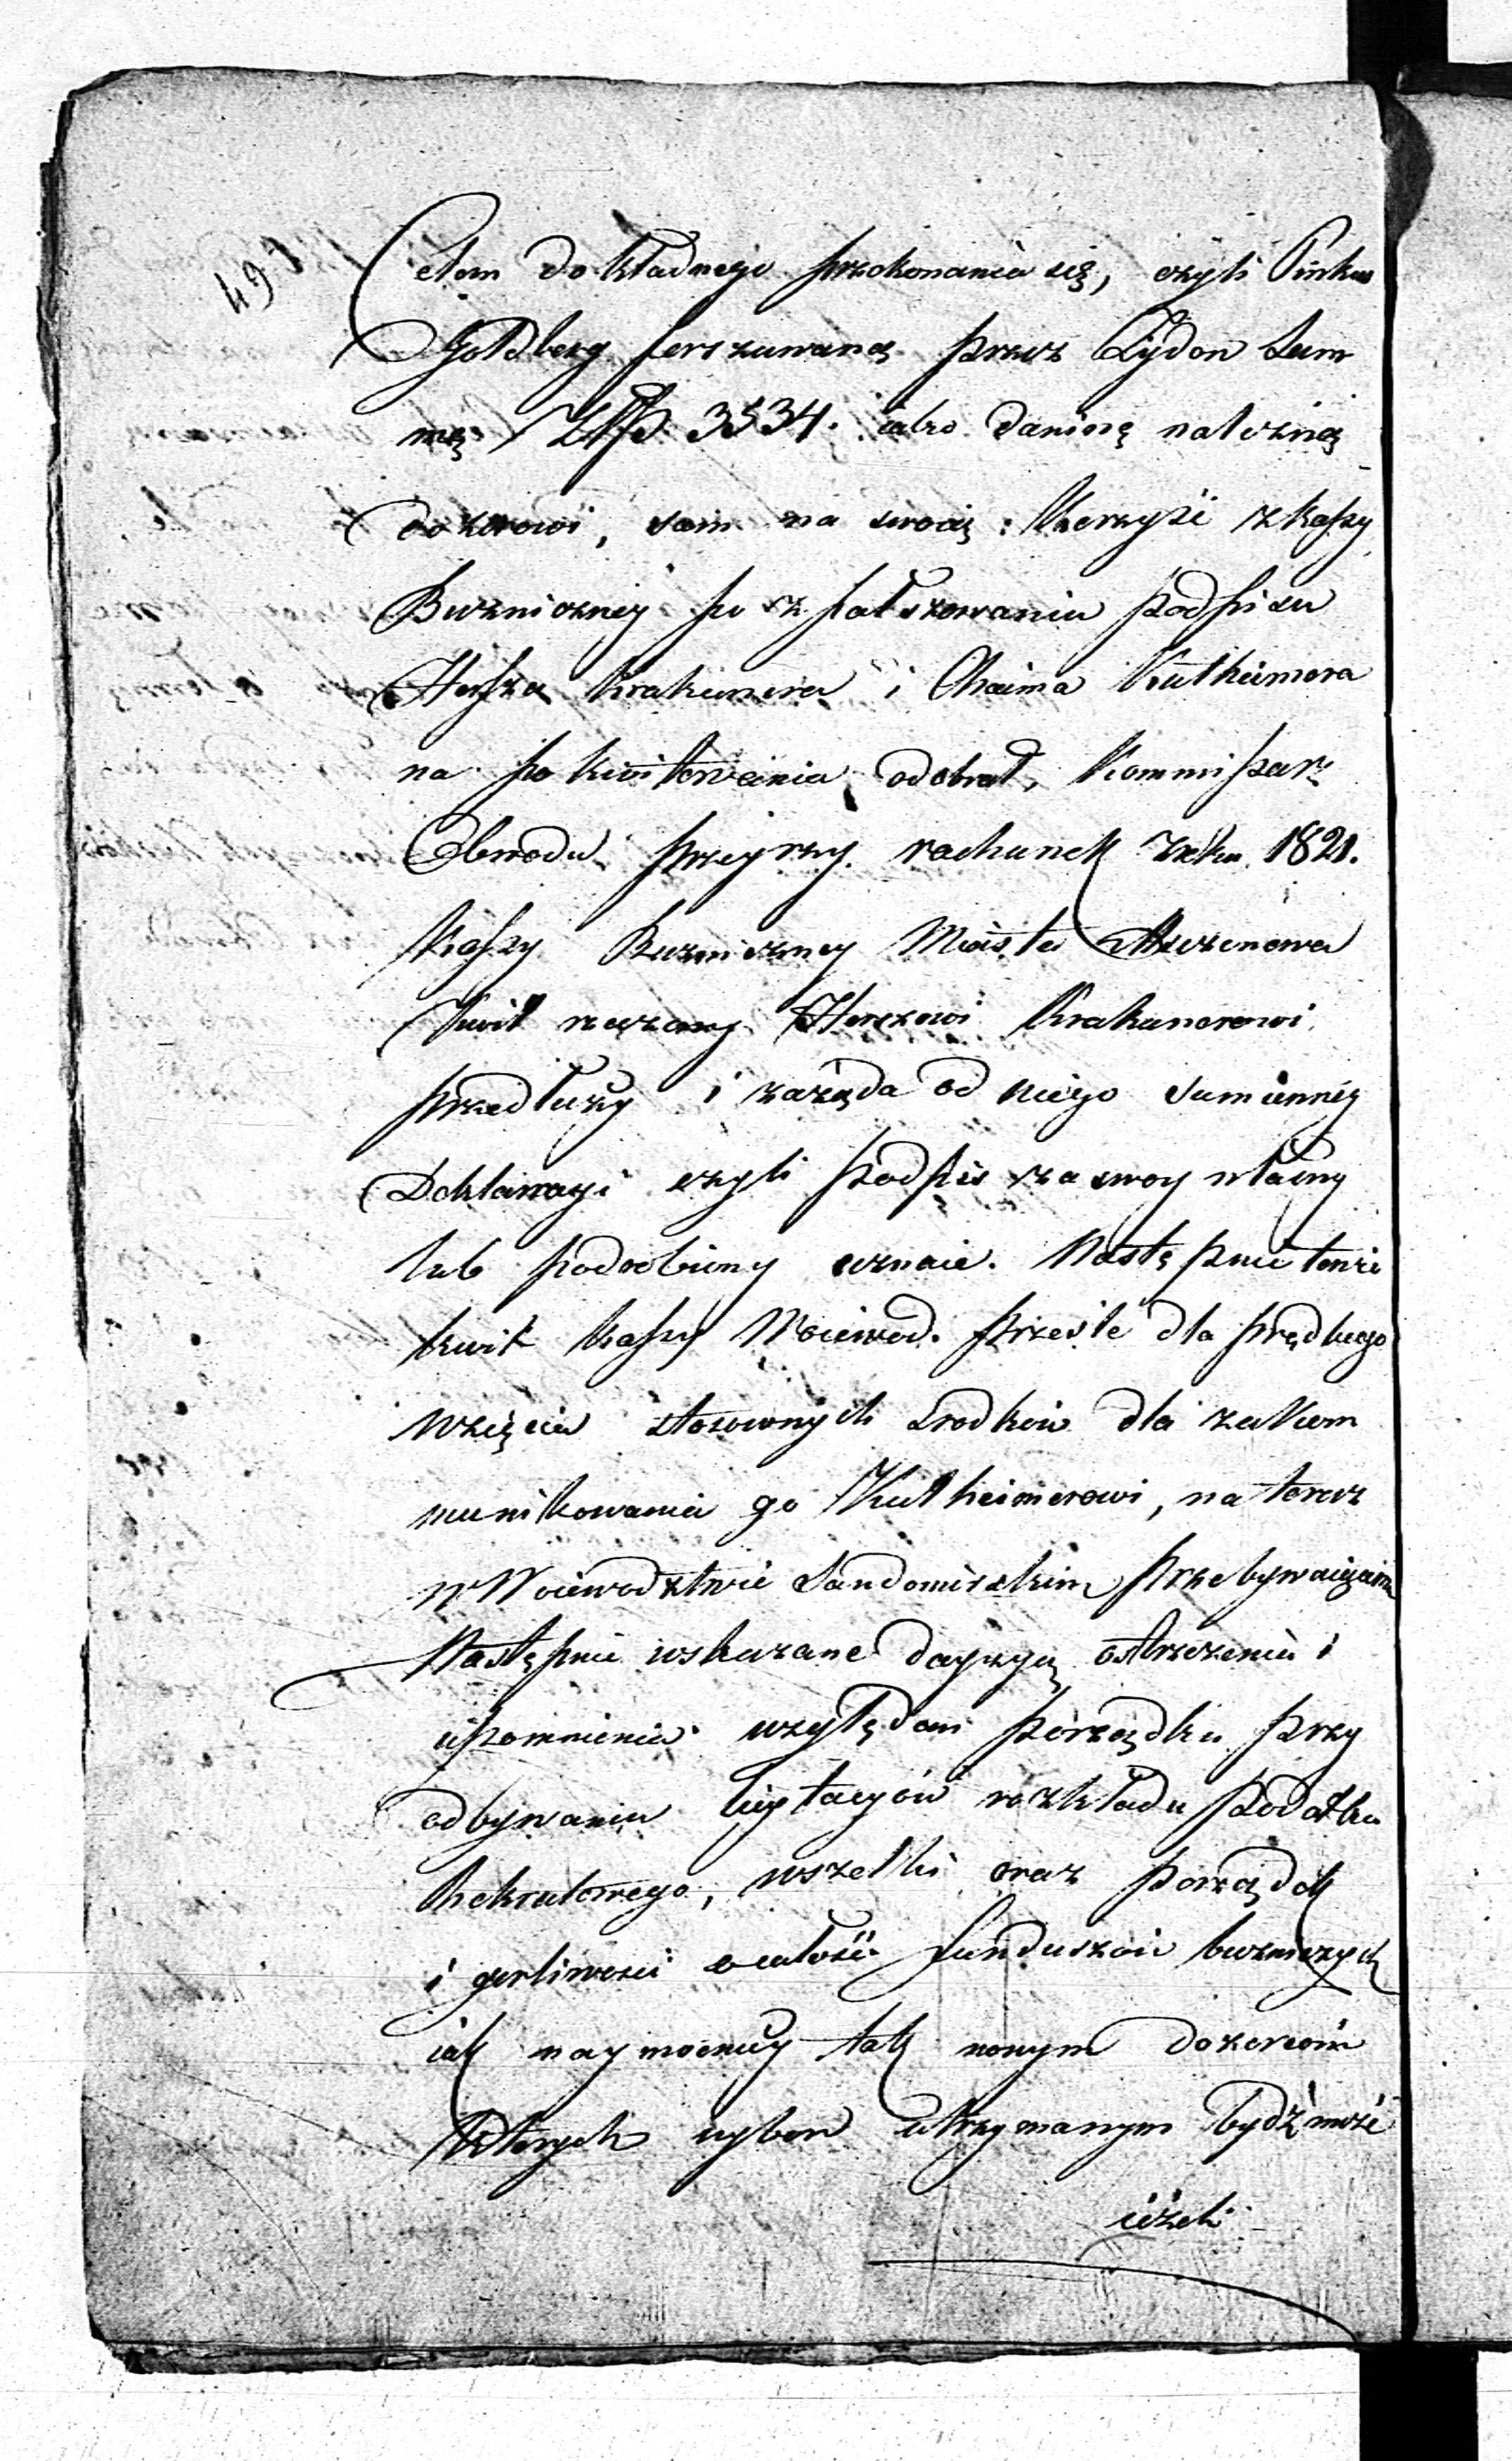 49
Celem dokładnego przekonania się, czyli Pinkus
Goldberg forszuwaną przez Żydow Sum
mę Złp 3534. iako daninę należną
dozorowi, sam na swoię Korzyść z kassy
Bużniczney po sfałszowaniu podpisu
Herszka Krakunera i Chaima Kutheimera
na pokwitowaniu odebrał, Kommissarz
Obwodu przeyrzy rachunek zroku 1821.
Kassy Bużniczney Miasta
Kwit rzeczony Herszowi Krakunerowi
przedłuży i zażąda od niego sumienney
Deklaracyi czyli podpis za swoy własny
lub podrobiony uznaie. Następnie tenże
kwit kassy Woiewod. prześle dla prędkiego
wzięcia stosownych srodków dla zakom
munikowania go Kutheimerowi, na teraz
w Woiewodztwie Sandomirskim przebywaiącemu
Następnie wskazane ostrzeżenia i
upomnienia względem porządku przy
odbywaniu licytacyów rozkładu podatku
Rekrutowego, wszelki oraz porządek
i gorliwość o całość funduszów bużniczych
iak naymocniey tak nowym dozorcom
których wybor utrzymanym bydź może
ieżeli